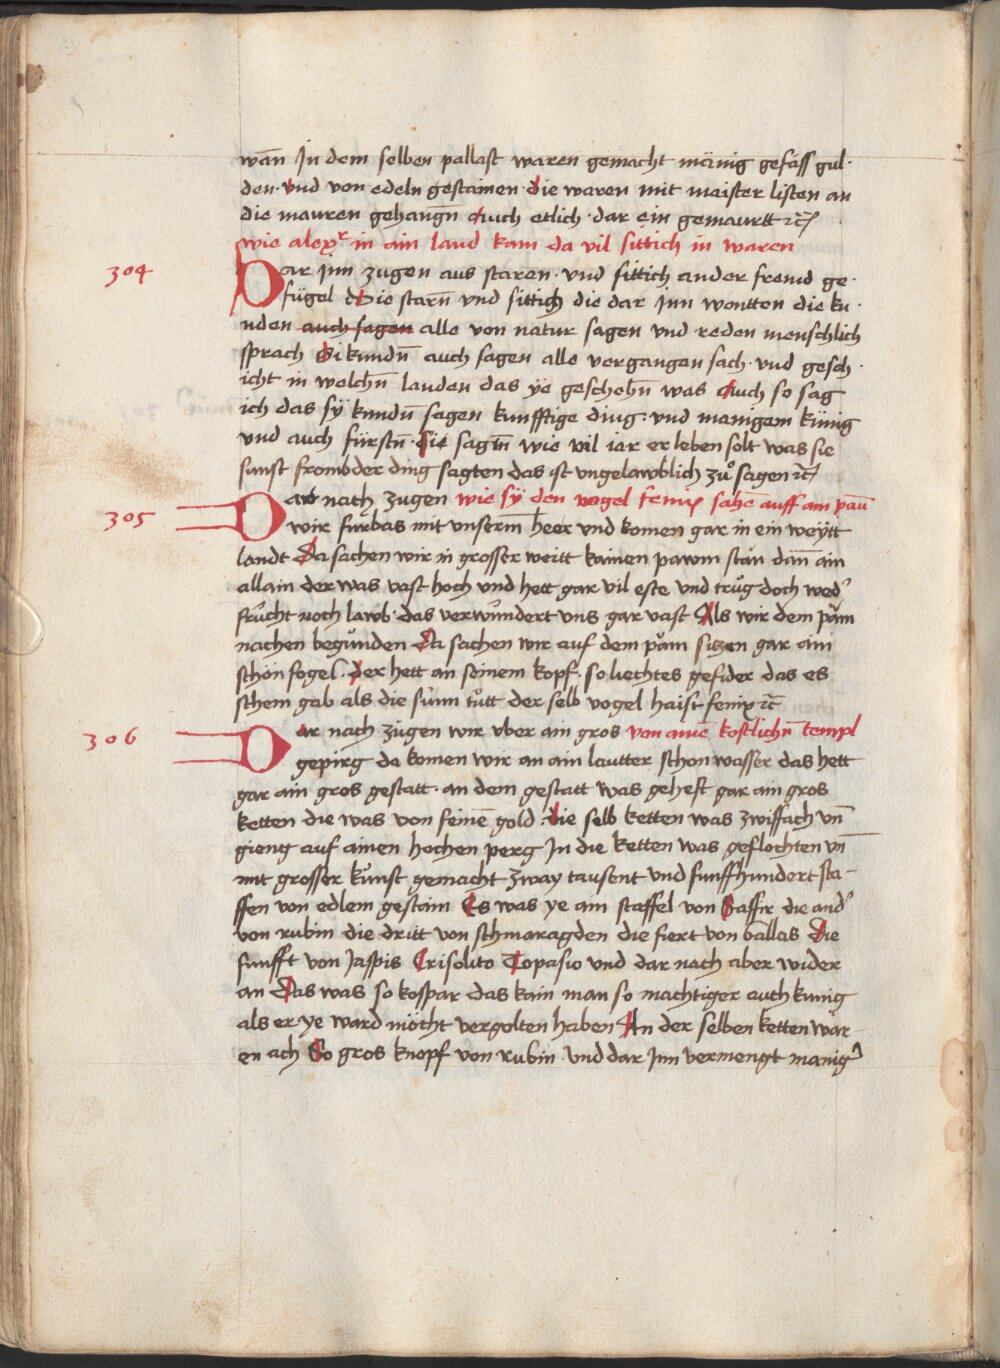 wan̄ Jn dem selben pallast waren gemacht mänig gefäss gul·
den· vnd von edeln gestainen· die waren mit maister listen an
die mauren gehangn̄ Auch etlich· dar ein gemaurtt ꝛc̄
wie alexr in ain land kam da vil sittich in waren
304 Dar Jnn zugen aus staren· vnd sittich ander fremd ge·
fügel Die starn̄ vnd sittich die dar Jnn wontten die ku·
nden auch sagen alle von natur sagen vnd reden menschlich
sprach Si kundn̄ auch sagen alle vergangen sach· vnd gesch·
icht in welchn̄ landen das ye geschehn̄ was Auch so sag
ich das sÿ kundn̄ sagen kunfftige ding· vnd manigem künig
vnd auch fürstn̄· Sie sagtn̄ wie vil iar er leben solt was sie
sunst frombder ding sagten das ist vngelawblich zů sagen ꝛc̄
305 Dar nach zugen wie sÿ den vogel fenix sahē auff am paū
wir furbas mit vnserm̄ heer vnd komen gar in ein weÿtt
landt Da sachen wir in grosser weitt kainen pawm stān dan̄ ain
allain der was vast hoch vnd hett gar vil este vnd trůg doch wed'
frůcht noch lawb· das verwundert vns gar vast Als wir dem pam
nachen begůnden Da sachen wir auf dem pam siczen gar ain
schön fogel· der hett an seinem kopf· so liechtes gefider das es
schein gab als die sůnn tůtt der selb vogel haist fenix ꝛc̄
306 Dar nach zůgen wir vber ain gros von ainē kostlichn̄ templ
gepirg da komen wir an ain lautter schon wasser das hett
gar ain gros gestatt· an dem gestatt was gehefft gar ain gros
ketten die was von feinē gold· die selb ketten was zwiffach vn̄
gieng auf ainen hochen perg Jn die ketten was geflochten vn̄
mit grosser kůnst gemacht zway tausent vnd funffhundert sta-
ffen von edlem gestain Es was ye ain staffel von Saffir die and'
von rubin die dritt von schmaragden die fiert von ballas Die
funfft von Jaspis Crisolito Topasio vnd dar nach aber wider
an Das was so kospar das kain man so machtiger auch kunig
als er ye ward möcht vergolten haben An der selben ketten war
en ach So gros knopf von rubin· vnd dar Jnn vermengt manig'